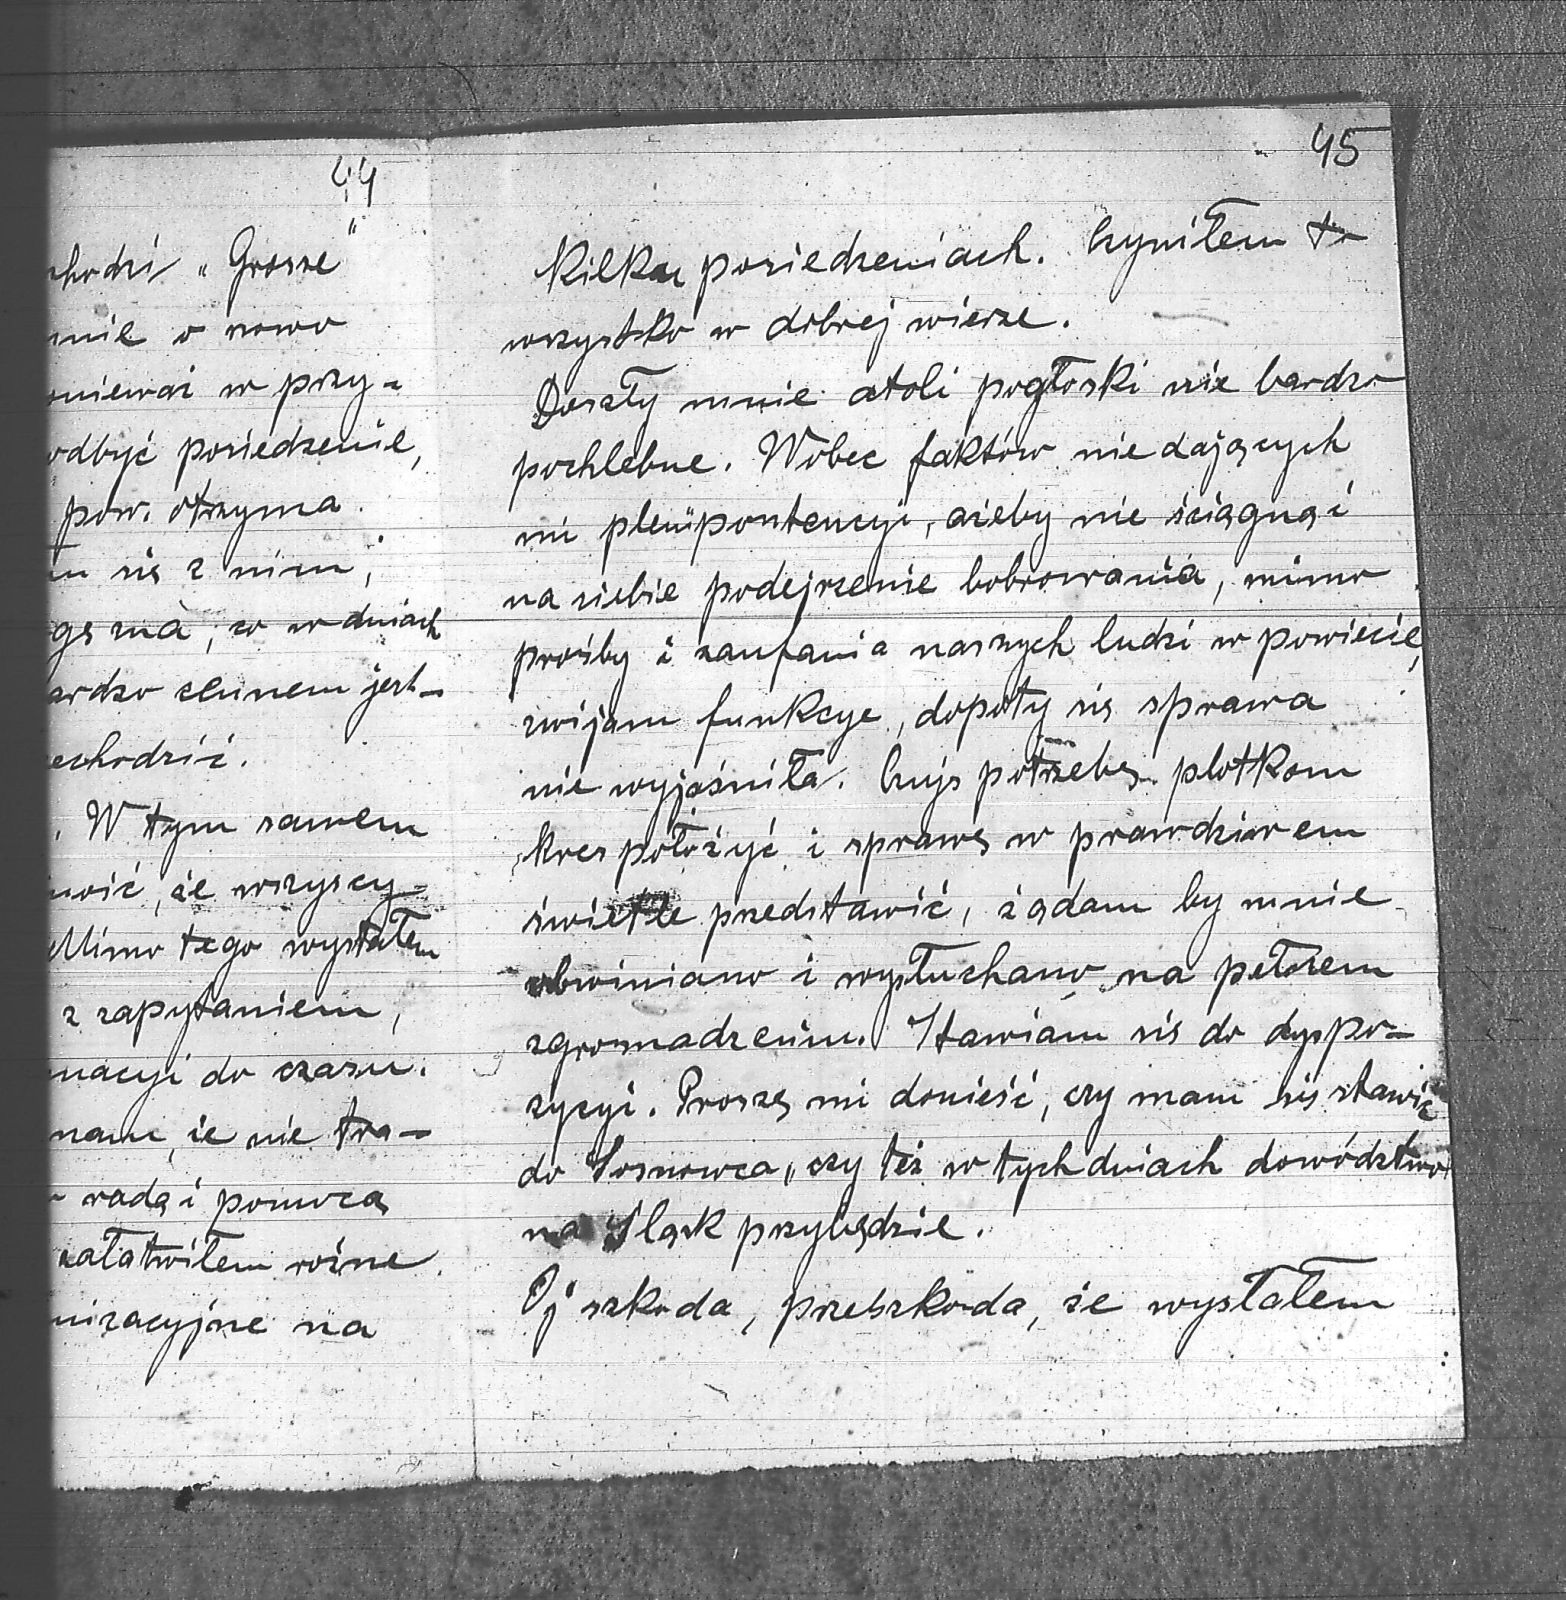 44
chodzi „Grosse"
mnie o nowo
onieważ w przy-
odbyć posiedzenie,
pow. otrzyma.
się z nim,
gę ma, co w dniach
ardzo celinem jest
echodzić.
W tym samem
ność, że wszyscy
Mimo tego wysłałem
z zapytaniem,
macyi do czasu.
nam, że nie tra-
radą i pomocą
załatwiłem rożne
nizacyjne na
45
kilku posiedzeniach. Czyniłem to
wszystko w dobrej wierze.
Doszły mnie atoli pogłoski nie bardzo
pochlebne. Wobec faktów nie dających
mi plenipontencyi, ażeby nie ściągnąć
na siebie podejrzenie bobrowania, mimo
prośby i zaufania naszych ludzi w powiecie,
zwijam funkcye, dopóty się sprawa
nie wyjaśniła. Czuję potrzebę plotkom
kres położyć i sprawę w prawdziwem
świetle przedstawić, żądam by mnie
obwiniano i wysłuchano na pełnem
zgromadzeniu. Stawiam się do dyspo-
zycyi. Proszę mi donieść, czy mam się stawić
do Sosnowca, czy też w tych dniach dowództwo
na Śląsk przybędzie.
Oj szkoda, przeszkoda, że wysłałem